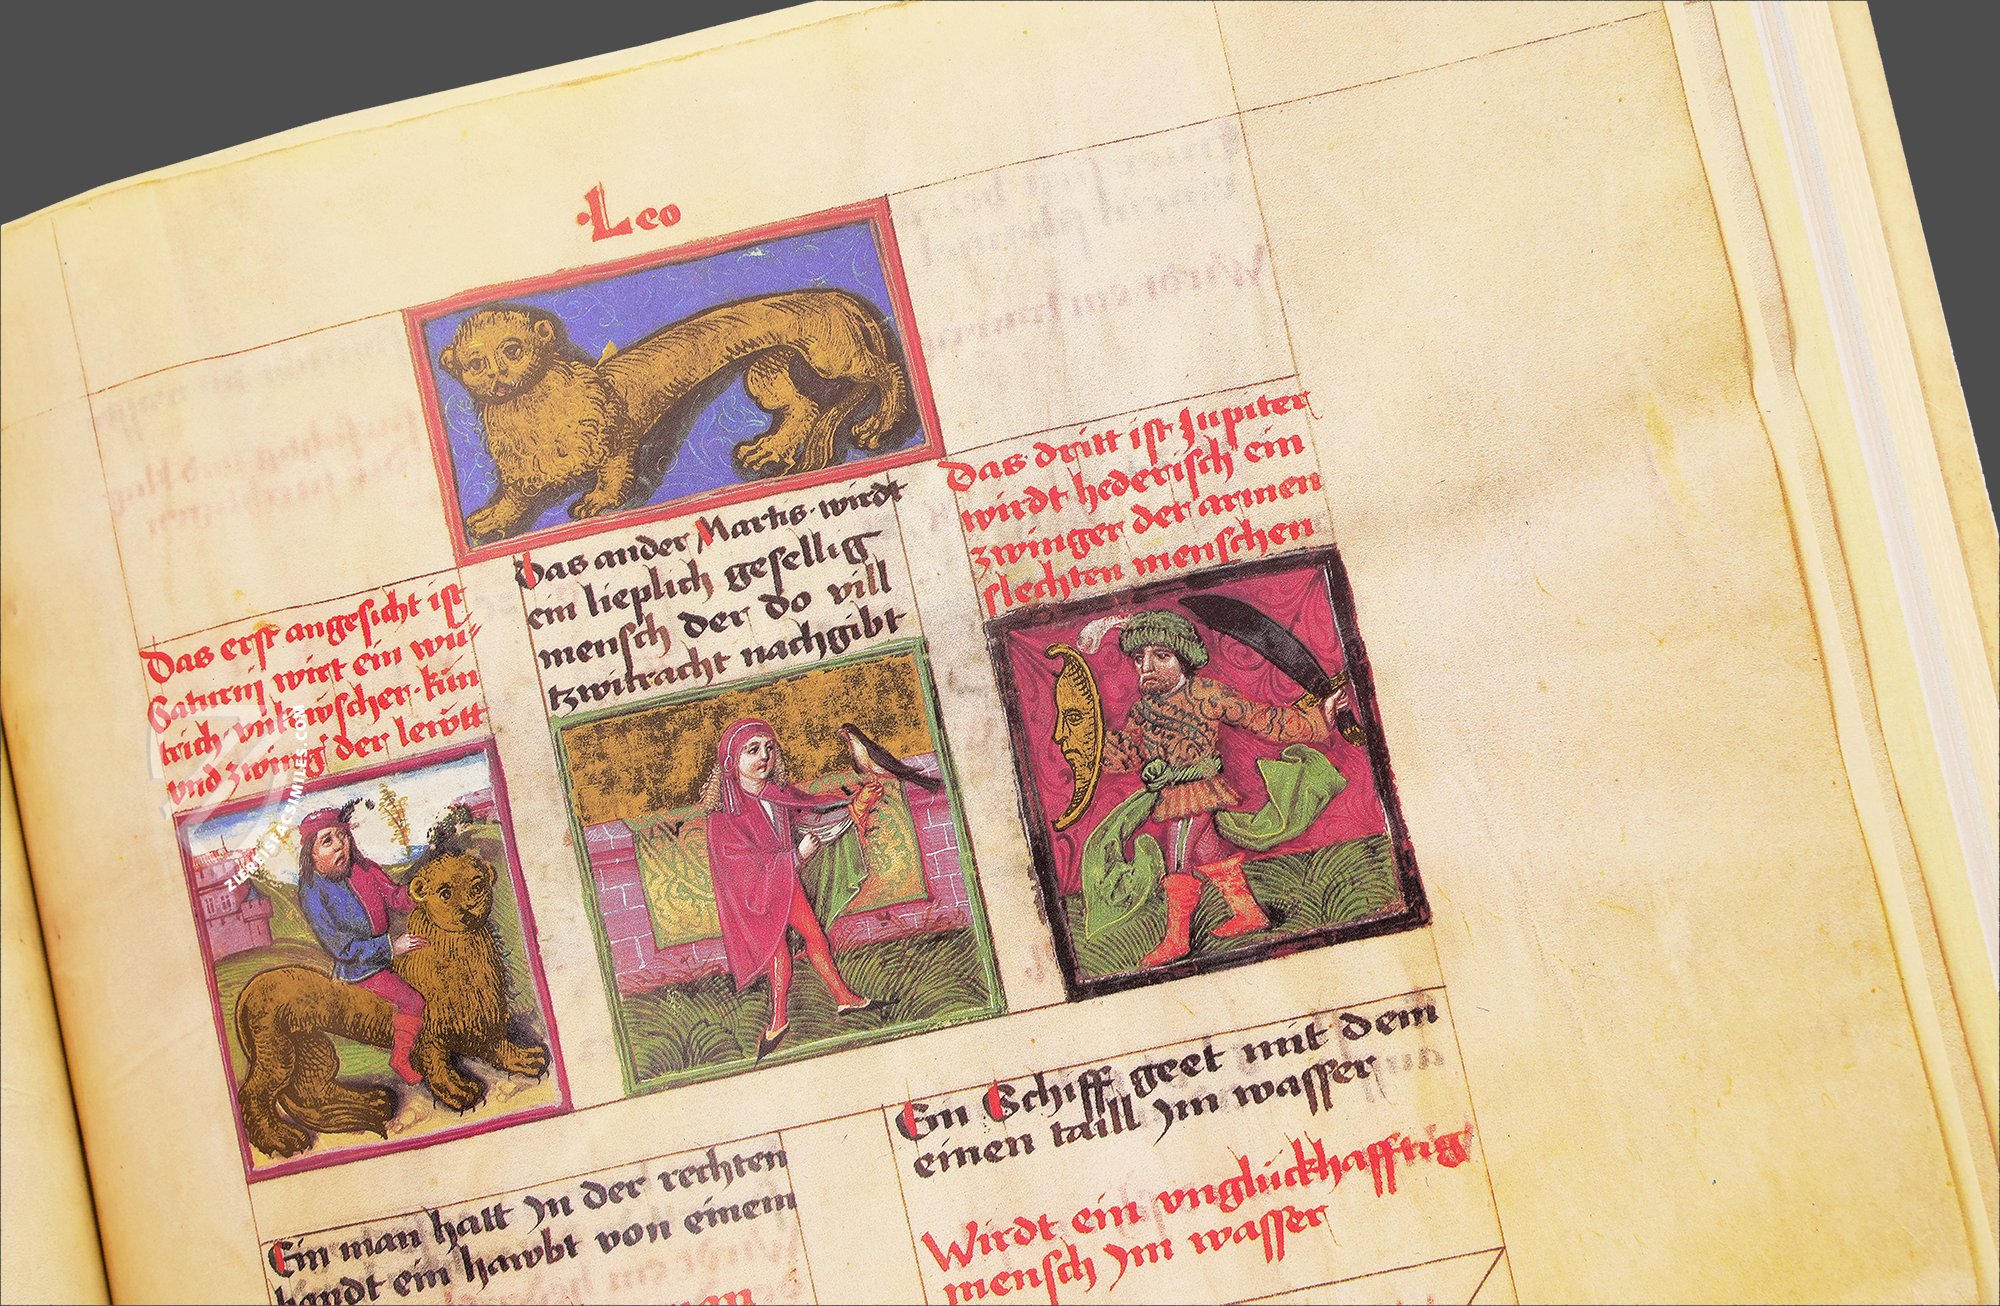 Leo
Das erst angesicht ist
Saturnj wirt ein wu-
trich vnkewscher kün
vnd zwing der lewtt
Das ander Martis wirdt
ein lieplich gesellig
mensch der do vill
tzwitracht nachgibt
Das dritt ist Jupiter
wirdt hederisch ein
zwinger der armen
slechten menschen
Ein man hatt Jn der rechten
handt ein hawbt von einem
Ein Schiff geet mit dem
einen taill Jm wasser
Wirdt ein vnglückhafftig
mensch Jm wasser
ZIEREIS FACSIMILES.COM